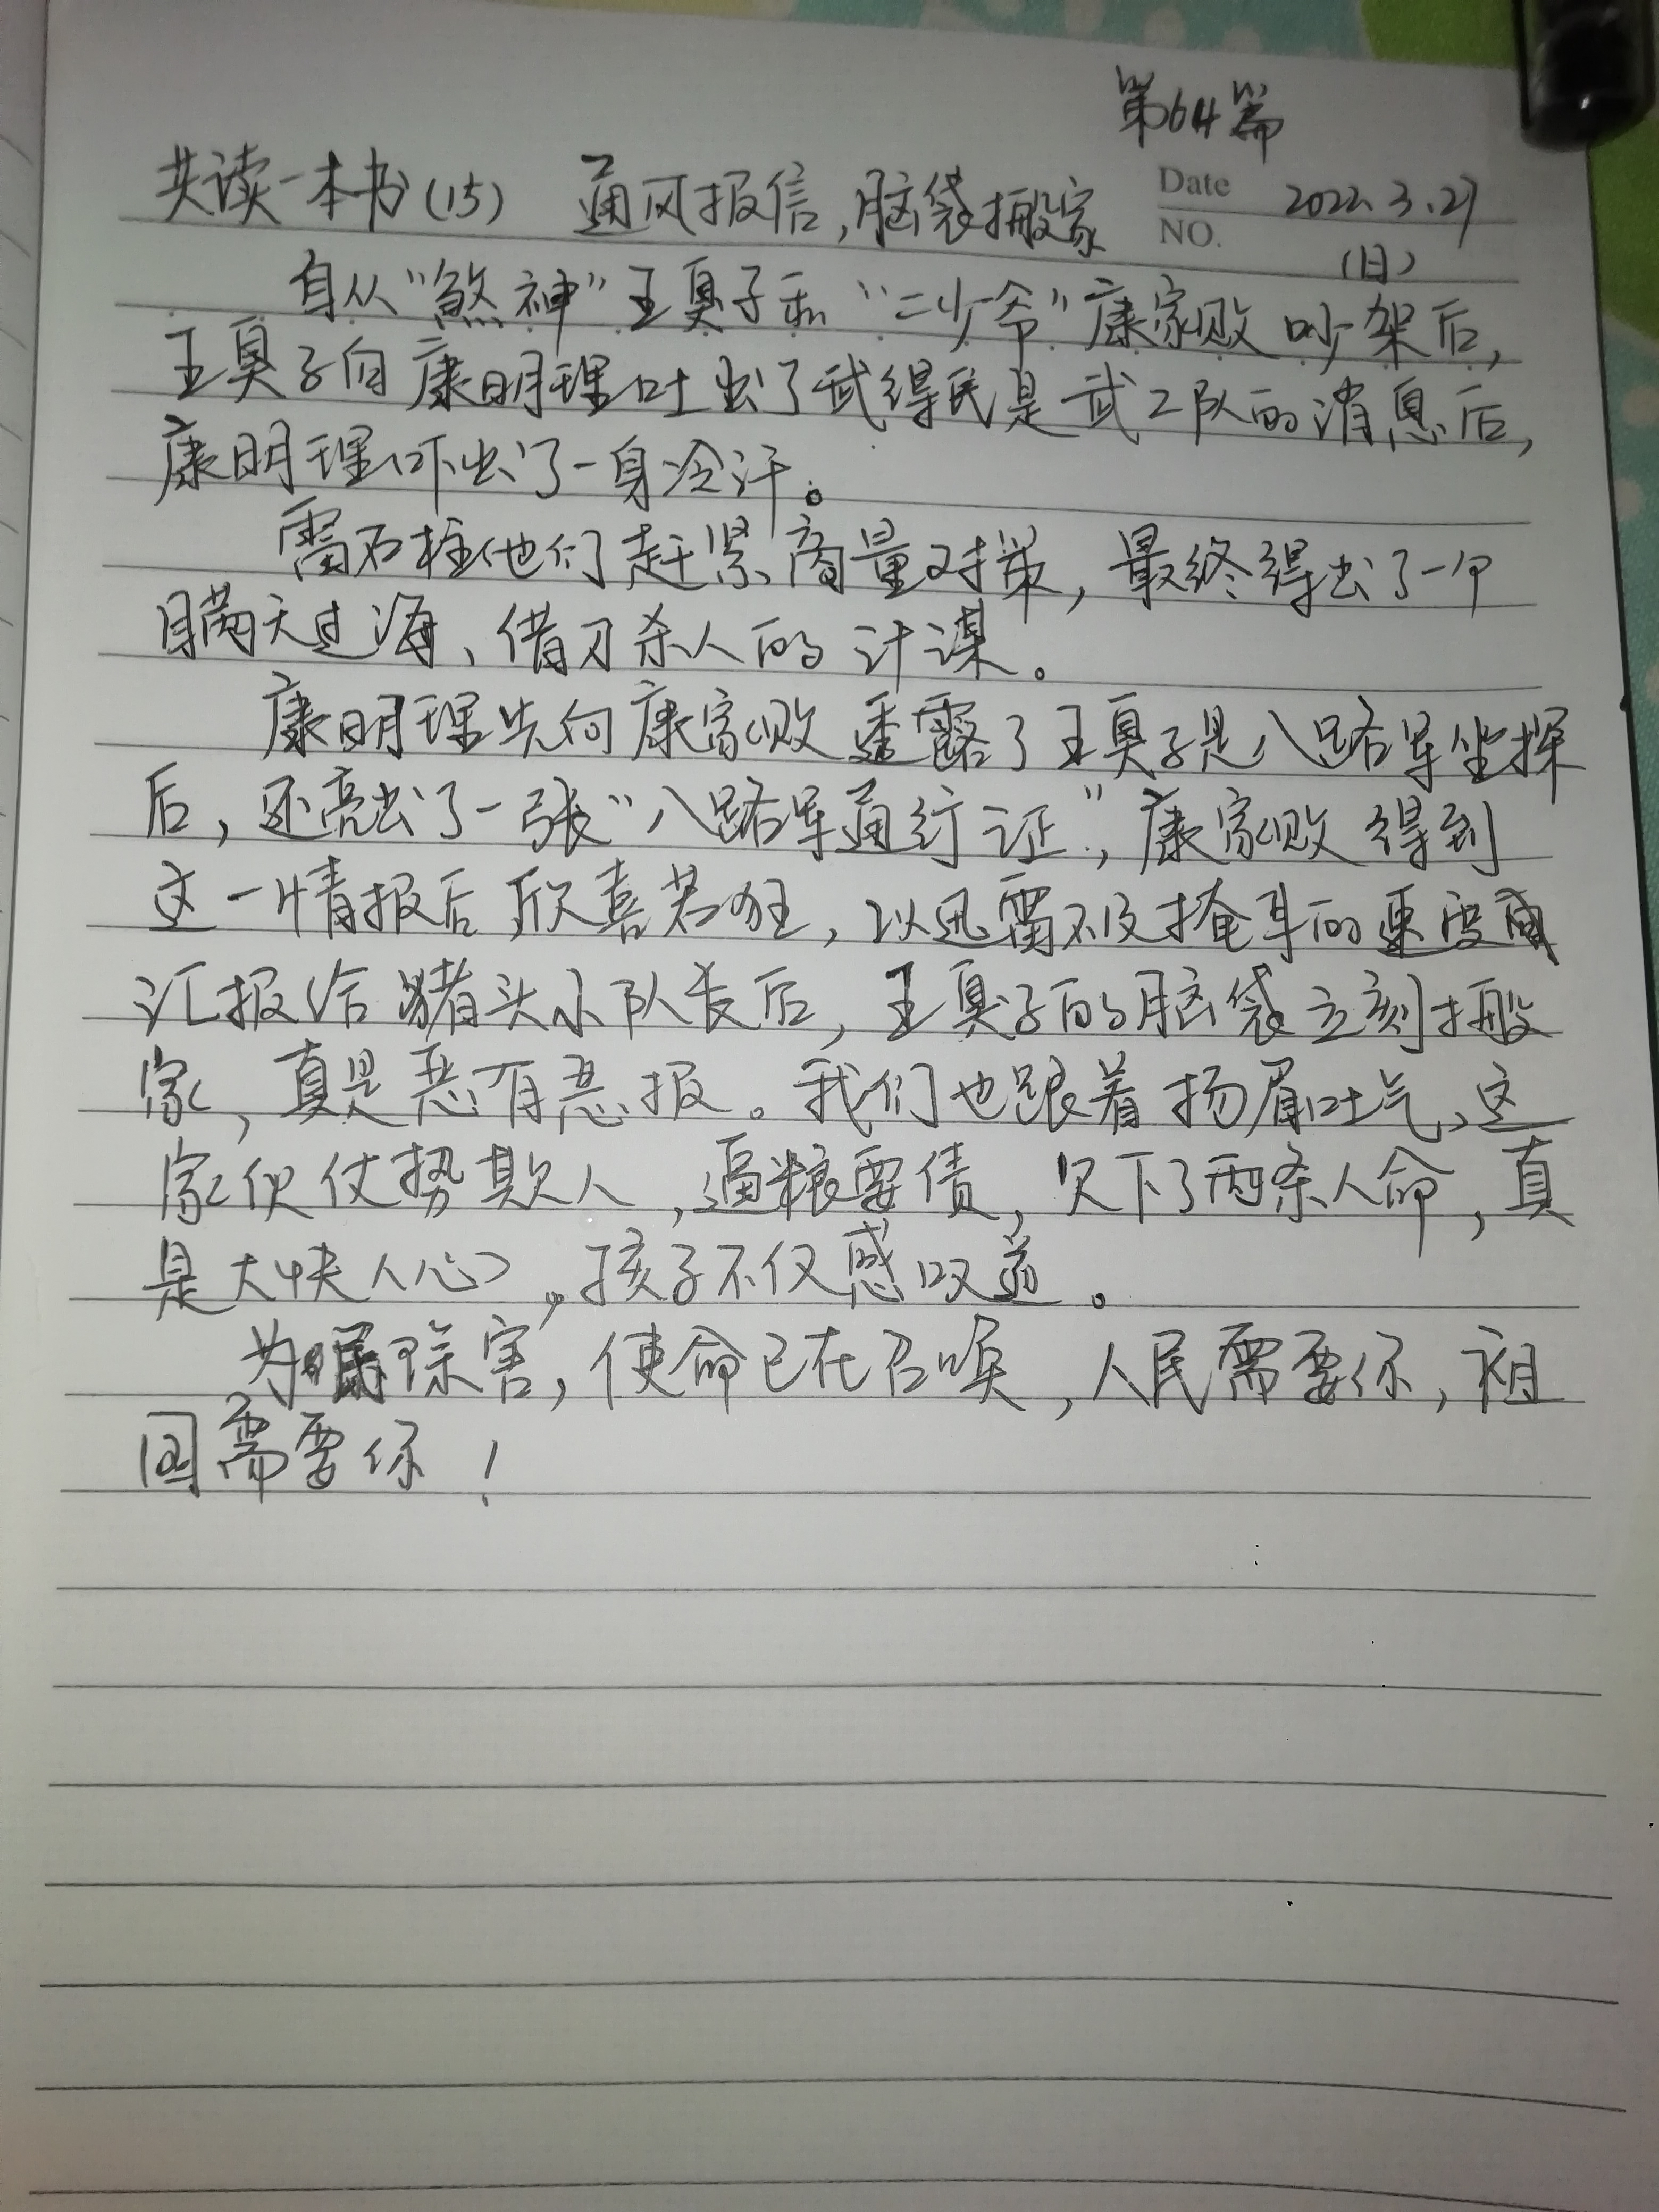 第64篇
共读一本书(15) 通风报信,脑袋搬家
Date 2022.3.27
NO.
(日)
自从“煞神”王臭子和“二少爷”康家败吵架后,
王臭子向康明理吐出了武得民是武工队的消息后,
康明理吓出了一身冷汗。
雷石柱他们赶紧商量对策,最终得出了一个
瞒天过海、借刀杀人的计谋。
康明理先向康家败透露了王臭子是八路军坐探
后,还亮出了一张“八路军通行证”,康家败得到
这一情报后欣喜若狂,以迅雷不及掩耳的速度
汇报给猪头小队长后,王臭子的脑袋立刻搬
家,真是恶有恶报。我们也跟着扬眉吐气,这
家伙仗势欺人,逼粮要债,欠下了两条人命,真
是大快人心,孩子不仅感叹道。
为民除害,使命已在召唤,人民需要你,祖
国需要你!